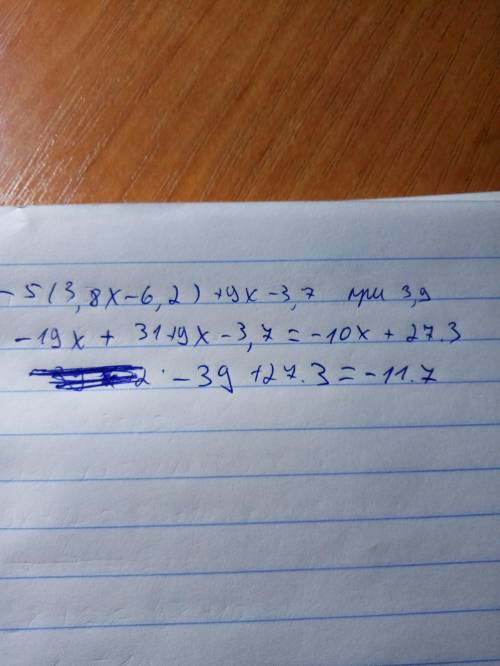 -5(3,8x-6,2)+9x-3,7 при 3,9
-19x + 31+9x-3,7=-10x+27.3
-39+27.3=-11.7